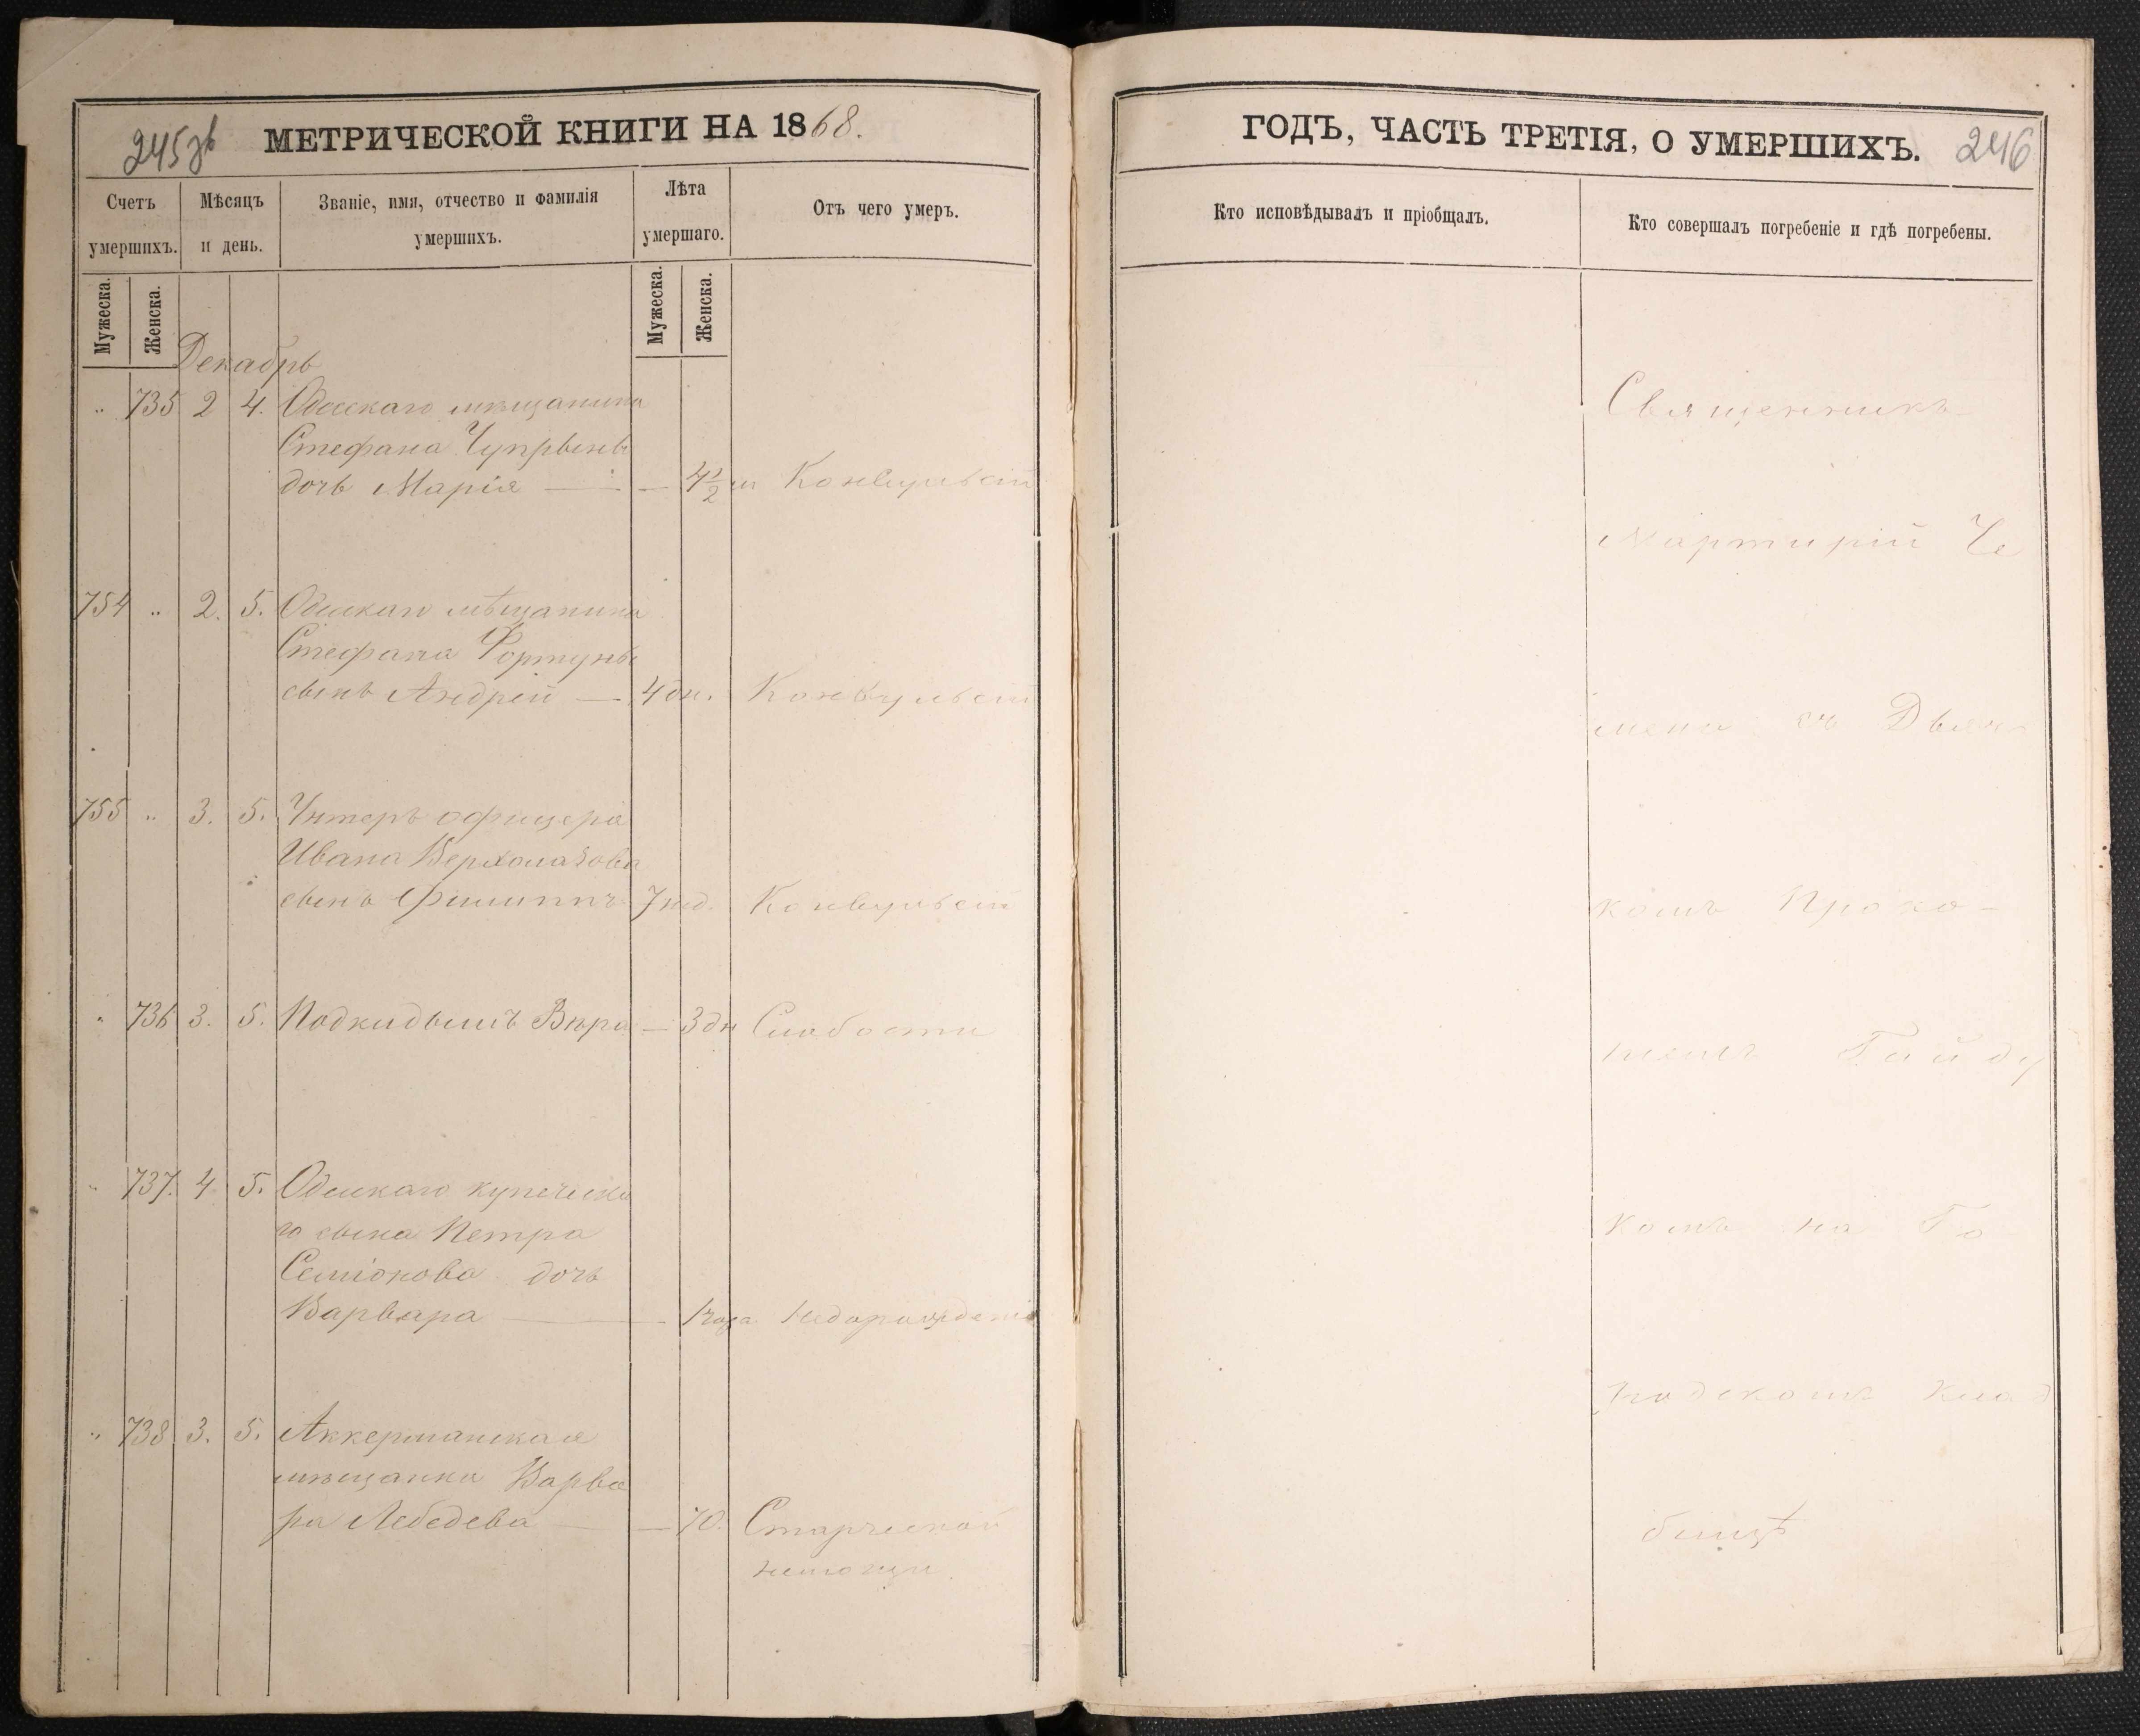 245зв
МЕТРИЧЕСКОЙ КНИГИ НА 1868.
Счетъ умершихъ.
Мѣсяцъ и день.
Званіе, имя, отчество и фамилія умершихъ.
Лѣта умершаго.
Отъ чего умеръ.
Мужеска.
Женска.
Мужеска.
Женска.
Декабрь
„ 735 2 4. Одесскаго мѣщанина
Стефана Чупрыны
дочь Марія — — 4 1/2 м Конвульсій
754 „ 2. 5. Одесскаго мѣщанина
Стефана Фортуны
сынъ Андрей — 4 дн. Конвульсій
755 „ 3. 5. Унтеръ офицера
Ивана Верхолазова
сынъ Филиппъ 7 нед. Конвульсій
„ 736 3. 5. Подкидышъ Вѣра — 3 дн Слабости
„ 737. 4 5. Одесскаго купеческа
го сына Петра
Семіонова дочь
Варвара — 1 часа Недорожденія
„ 738 3. 5. Аккерманская
мѣщанка Варва
ра Лебедева — — 70. Старческой
немощи
ГОДЪ, ЧАСТЬ ТРЕТІЯ, О УМЕРШИХЪ.
246
Кто исповѣдывалъ и пріобщалъ.
Кто совершалъ погребеніе и гдѣ погребены.
Священникъ
Мартирій Че
мена съ Дьяч
комъ Проко-
піемъ Гайду
комъ на Го
родскомъ клад
бищѣ